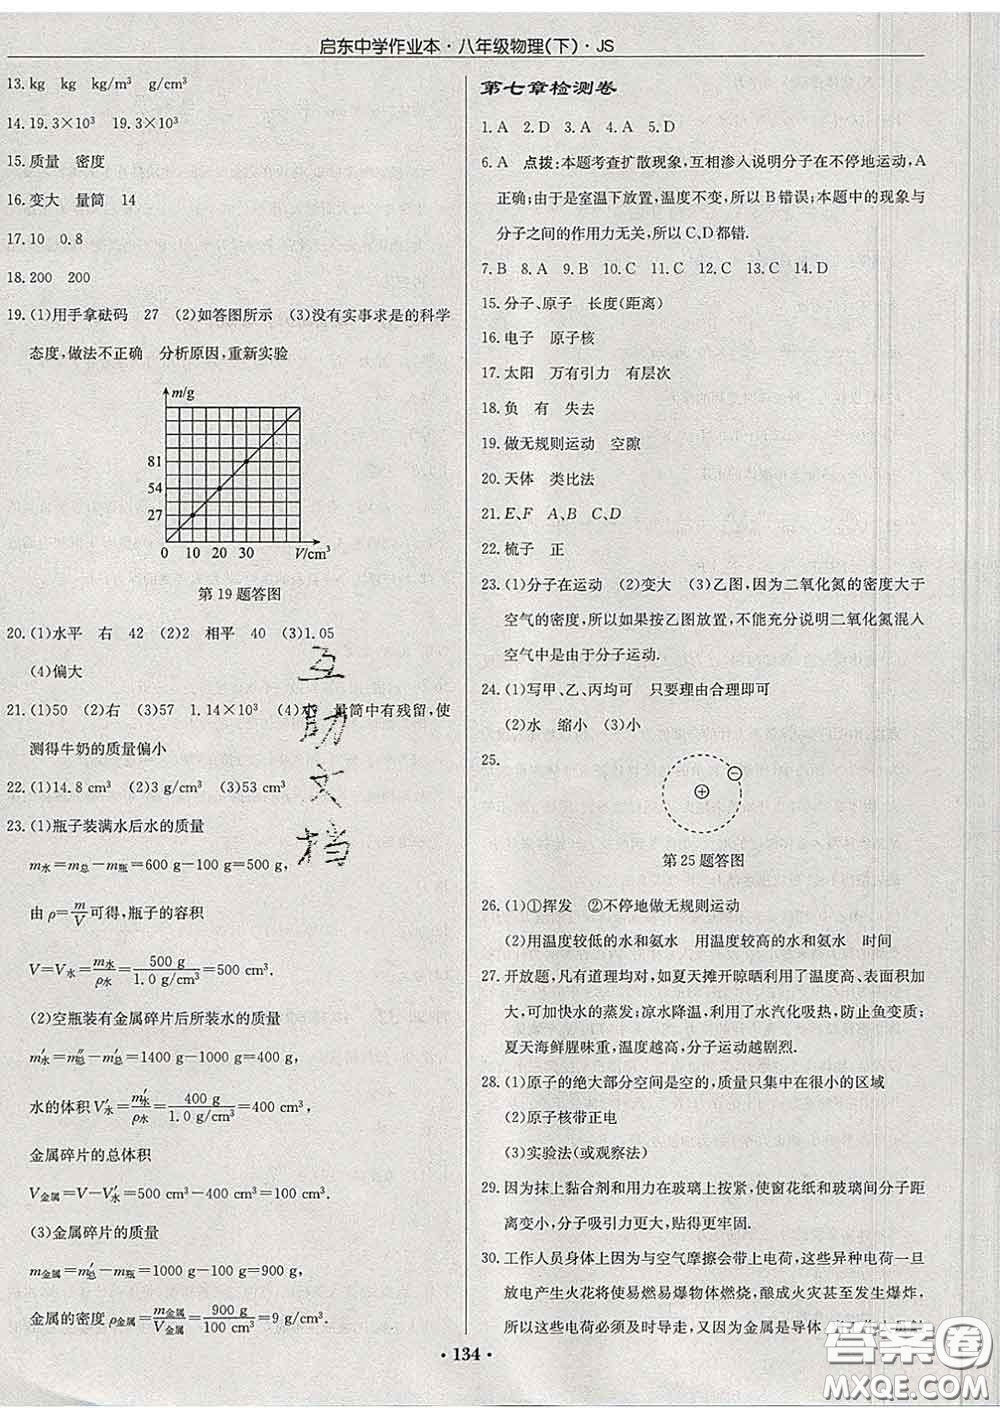 启东中学作业本·八年级物理(下)·JS
13. kg　kg　kg/m³　g/cm³
14. 19.3×10³　19.3×10³
15. 质量　密度
16. 变大　量筒　14
17. 10　0.8
18. 200　200
19. (1)用手拿砝码　27　(2)如答图所示　(3)没有实事求是的科学
态度,做法不正确　分析原因,重新实验
m/g
81
54
27
0　10　20　30　V/cm³
第19题答图
20. (1)水平　右　42　(2)2　相平　40　(3)1.05
(4)偏大
21. (1)50　(2)右　(3)57　1.14×10³　(4)水　量筒中有残留,使
测得牛奶的质量偏小
22. (1)14.8 cm³　(2)3 g/cm³　(3)53 cm³
23. (1)瓶子装满水后水的质量
m水=m总-m瓶=600 g-100 g=500 g,
由 ρ=m/V 可得,瓶子的容积
V=V水=m水/ρ水=500 g/1.0 g/cm³=500 cm³.
(2)空瓶装有金属碎片后所装水的质量
m′水=m″总-m′总=1400 g-1000 g=400 g,
水的体积 V′水=m′水/ρ水=400 g/1.0 g/cm³=400 cm³,
金属碎片的总体积
V金属=V-V′水=500 cm³-400 cm³=100 cm³.
(3)金属碎片的质量
m金属=m′总-m瓶=1000 g-100 g=900 g,
金属的密度 ρ金属=m金属/V金属=900 g/100 cm³=9 g/cm³.
第七章检测卷
1. A　2. D　3. A　4. A　5. D
6. A　点拨:本题考查扩散现象,互相渗入说明分子在不停地运动,A
正确;由于是室温下放置,温度不变,所以B错误;本题中的现象与
分子之间的作用力无关,所以C、D都错.
7. B　8. A　9. B　10. C　11. C　12. C　13. C　14. D
15. 分子、原子　长度(距离)
16. 电子　原子核
17. 太阳　万有引力　有层次
18. 负　有　失去
19. 做无规则运动　空隙
20. 天体　类比法
21. E、F　A、B　C、D
22. 梳子　正
23. (1)分子在运动　(2)变大　(3)乙图,因为二氧化氮的密度大于
空气的密度,所以如果按乙图放置,不能充分说明二氧化氮混入
空气中是由于分子运动.
24. (1)写甲、乙、丙均可　只要理由合理即可
(2)水　缩小　(3)小
25.
+
−
第25题答图
26. (1)①挥发　②不停地做无规则运动
(2)用温度较低的水和氨水　用温度较高的水和氨水　时间
27. 开放题,凡有道理均对,如夏天摊开晾晒利用了温度高、表面积加
大,可加快水的蒸发;凉水降温,利用了水汽化吸热,防止鱼变质;
夏天海鲜腥味重,温度越高,分子运动越剧烈.
28. (1)原子的绝大部分空间是空的,质量只集中在很小的区域
(2)原子核带正电
(3)实验法(或观察法)
29. 因为抹上黏合剂和用力在玻璃上按紧,使窗花纸和玻璃间分子距
离变小,分子吸引力更大,贴得更牢固.
30. 工作人员身体上因为与空气摩擦会带上电荷,这些异种电荷一旦
放电产生火花将使易燃易爆物体燃烧,酿成火灾甚至发生爆炸,
所以这些电荷必须及时导走,又因为金属是导体
互
助
文
档
答案圈
MXQE.COM
· 134 ·